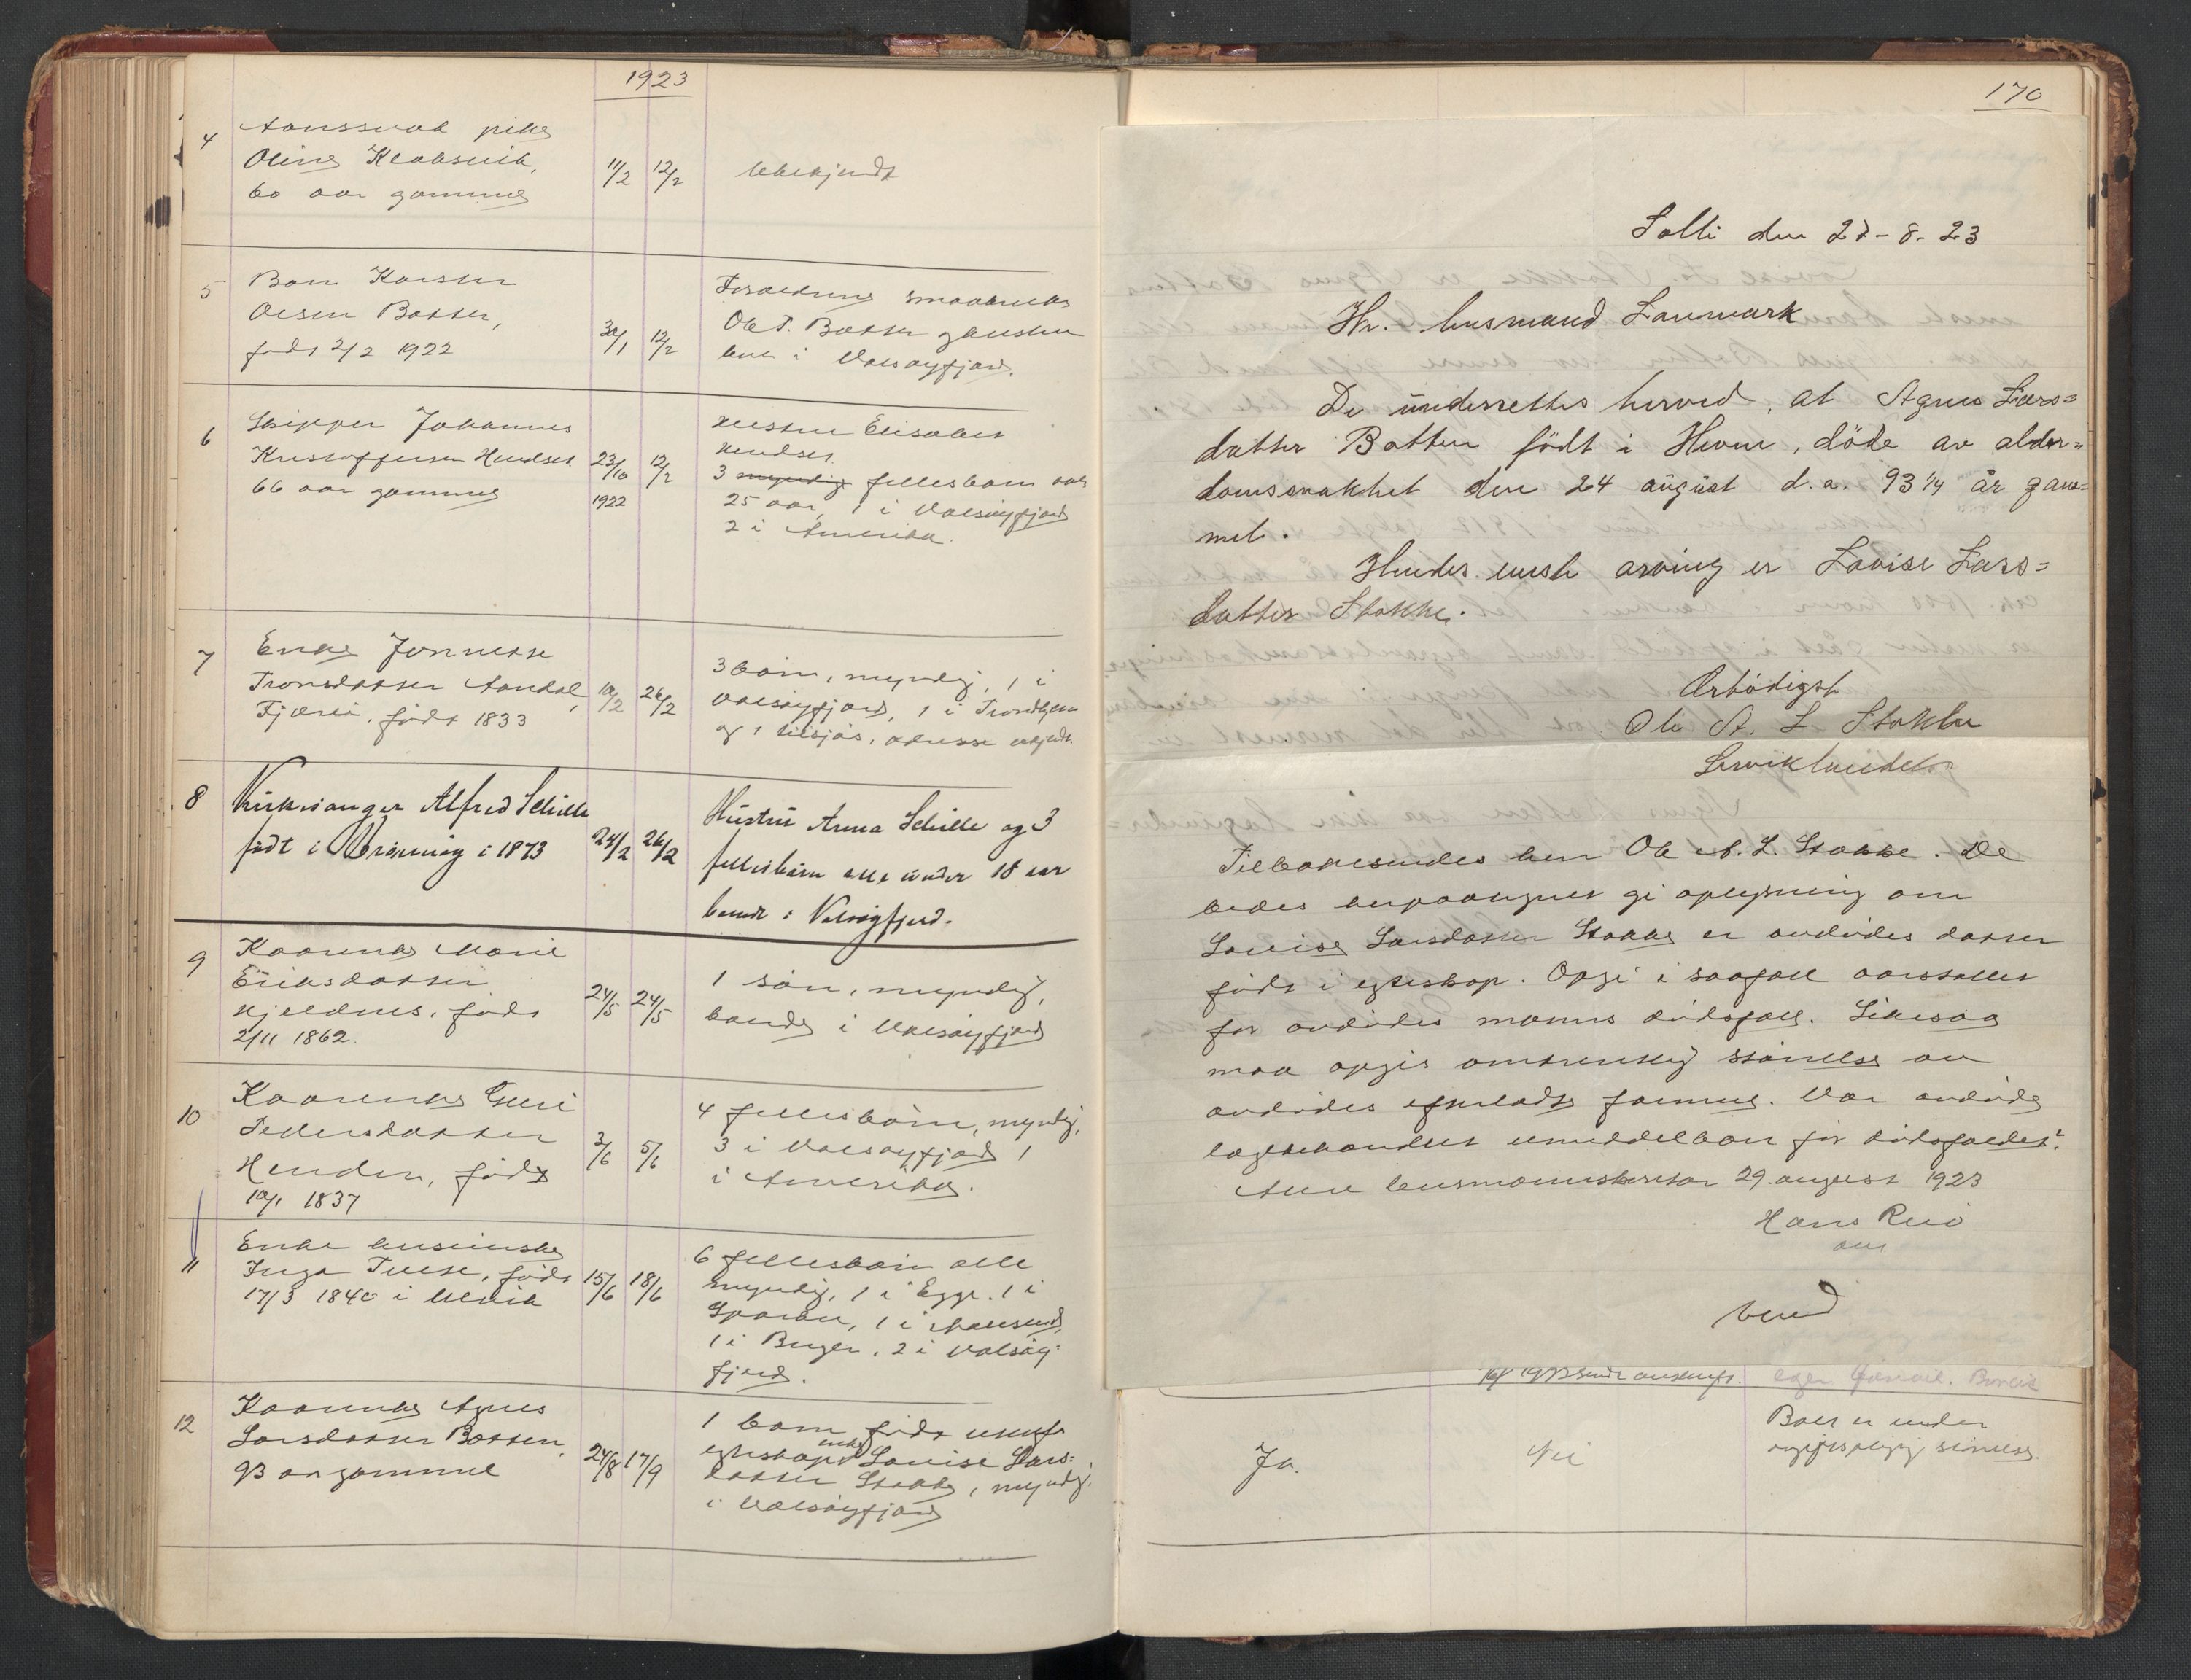 1923
4
pike
Oline
60 aar gammel
11/2 12/2
Ubekjendt
5
Barn Karsten
Olsen Botten,
født 2/2 1922
30/1 12/2
Forældrene smaabruker
Ole P. Botten
i Valsøyfjord.
6
Skipper Johannes
Kristoffersen Hendset
66 aar gammel
23/10 12/2
1922
Hustru Elisabet
Hendset
3 myndig fellesbarn
25 aar, 1 i Valsøyfjord
2 i Amerika.
7
Enke
Tronsdatter Aandal,
født 1833
10/2 26/2
3 børn, myndig, 1 i
Valsøyfjord, 1 i Trondhjem
og 1 tilsjøs, adresse
8
Kirkesanger Alfred Schille
født i i 1873
24/2 26/2
Hustru Anna Schille og 3
fellesbørn alle under 18 aar
i Valsøyfjord.
9
Kaarenke Marie
Eriksdatter
født
2/11 1862.
24/5 24/5
1 søn, myndig,
i Valsøyfjord
10
Kaarenke Guri
Pedersdatter
Henden, født
10/1 1837
3/6 5/6
4 fellesbørn, myndig,
3 i Valsøyfjord 1
i Amerika.
11
Enke
Inga født
17/3 1840 i
15/6 18/6
6 fellesbørn alle
myndig, 1 i Egge. 1 i
Sparbu, 1 i
1 i Bergen, 2 i Valsøy=
fjord.
12
Kaarenke Agnes
Larsdatter Botten,
93 aar gammel
24/8 17/9
1 barn født utenfor
egteskap Lovise Lars=
datter Stokke, myndig.
i Valsøyfjord
170
Solli den 27-8-23
Hr. lensmand Lanmark
De underrettes herved, at Agnes Lars=
datter Botten født i Hevne, døde av alder=
domssvakhet den 24 august d.a. 93 1/4 år gam=
mel.
Hendes eneste arving er Lovise Lars=
datter Stokke.
Ærbødigst
Ole A. L. Stokke
Tilbakesendes herr Ole A. L. Stokke. De
bedes herpaategnet gi oplysning om
Lovise Larsdatter Stokke er avdødes datter
født i egteskap. Opgi i saafall aarstallet
for avdødes manns dødsfall. Likesaa
maa opgis omtrentlig størrelse av
avdødes efterladte formue. Var avdøde
lægebehandlet umiddelbart før dødsfallet?
Aure lensmannskontor 29. august 1923
Hans
vend
Ja.
Nei
Boet er under
avgiftspligtig størrelse.